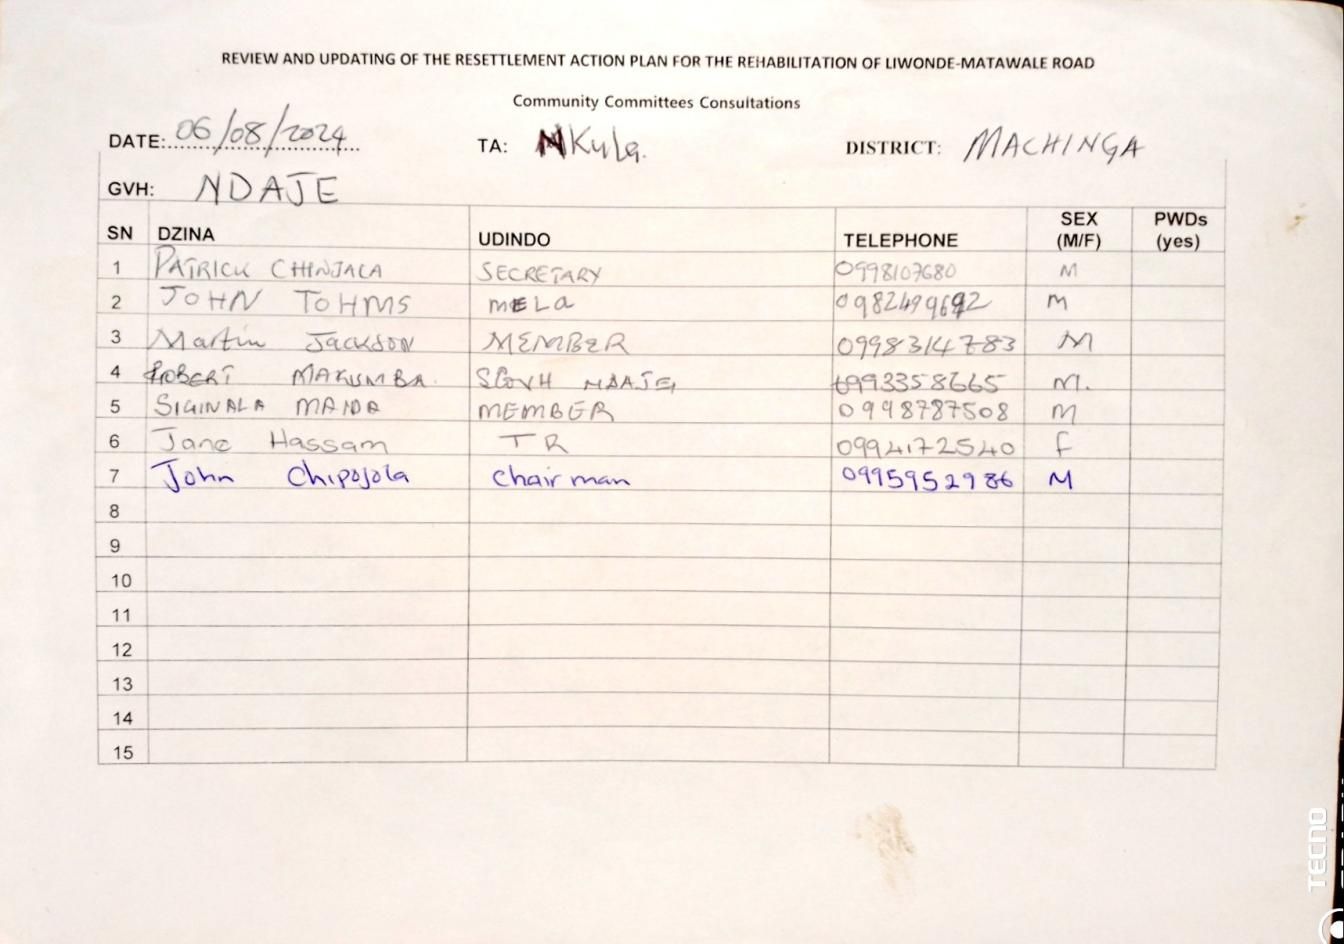 REVIEW AND UPDATING OF THE RESETTLEMENT ACTION PLAN FOR THE REHABILITATION OF LIWONDE-MATAWALE ROAD
Community Committees Consultations
DATE:06/08/2024 TA: NKula. DISTRICT: MACHINGA
GVH: NDAJE
SN DZINA UDINDO TELEPHONE SEX (M/F) PWDs (yes)
1 PATRICK CHINJALA SECRETARY 0998107680 M
2 JOHN TOHMS MELA M
3 Martin Jackson MEMBER 0998314783 M
4 ROBERT MAKUMBA. SGVH NDAJE 0993358665 M.
5 SIGINALA MAIDA MEMBER 0998787508 M
6 Jane Hassam TR 0994172540 F
7 John Chipojola Chairman 0995952986 M
8
9
10
11
12
13
14
15
TECNO